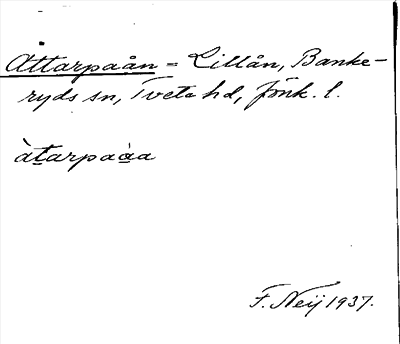 Åttarpaån = Lillån, Banke-
ryds sn, Tveta hd, Jönk. l.
àtarpaåa
F. Neij 1937.